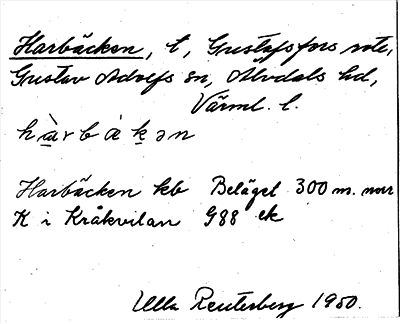 Harbäcken, t, Gustafsfors rote,
Gustav Adolfs sn, Älvdals hd,
Värml. l.
hàrbàkən
Harbäcken kb Beläget 300 m. norr
K i Kråkvilan 988 ek
Ulla Reuterberg 1950.